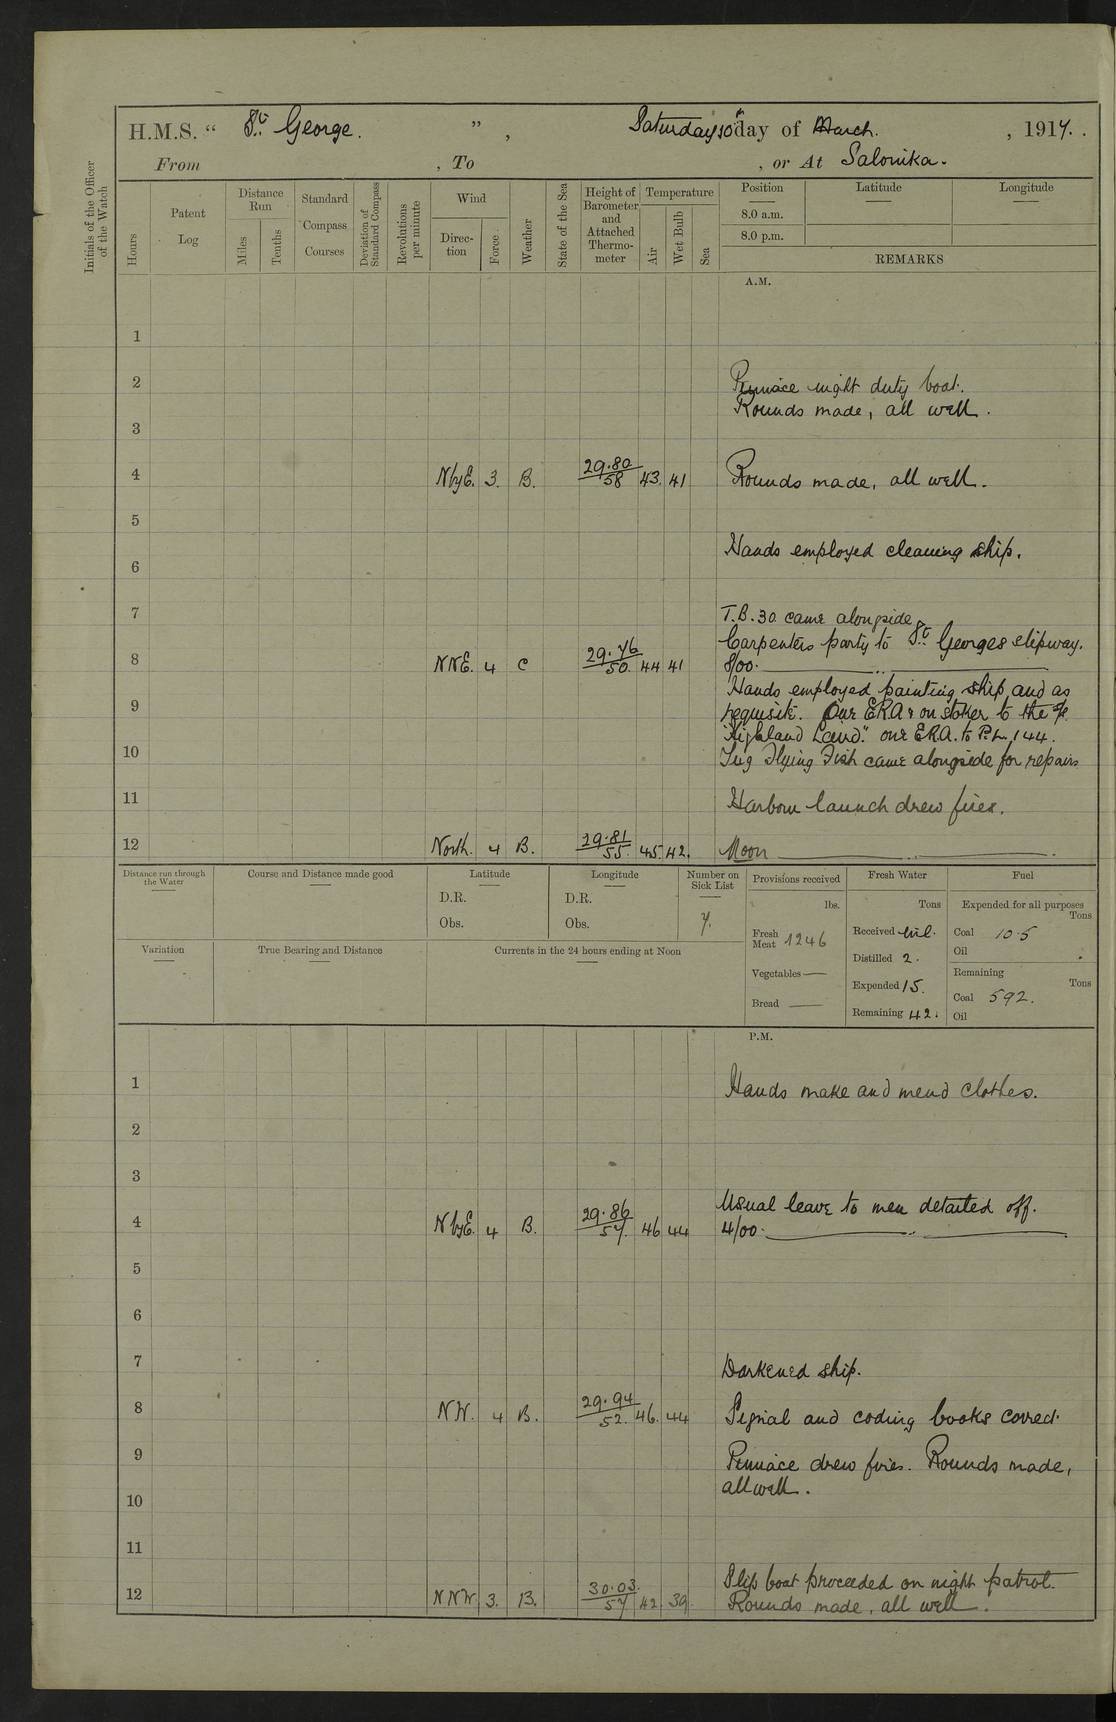 H.M.S. " St George. " , Saturday 10th day of March. , 1917. .
From , To , or At Salonika.
Initials of the Officer of the Watch
Hours
Patent Log
Distance Run
Miles
Tenths
Standard Compass Courses
Deviation of Standard Compass
Revolutions per minute
Wind
Direc-tion
Force
Weather
State of the Sea
Height of Barometer and Attached Thermo-meter
Temperature
Air
Wet Bulb
Sea
Position
8.0 a.m.
8.0 p.m.
Latitude
Longitude
REMARKS
A.M.
1
2 Pinnace night duty boat.
Rounds made, all well.
3
4 NbyE. 3. B. 29.80 58 43. 41 Rounds made, all well.
5
Hands employed cleaning ship.
6
7 T.B. 30 came alongside.
Carpenters party to St Georges slipway.
8 NNE. 4 C 29.76 50. 44 41 8/00.
Hands employed painting ship and as
9 requisite. One E.R.A & on stoker to the
"Highland Laird." one E.R.A. to P.L. 144.
10 Tug Flying Fish came alongside for repairs
11 Harbour launch drew fires.
12 North. 4 B. 29.81 55. 45. 42. Noon
Distance run through the Water
Course and Distance made good
Latitude
D.R.
Obs.
Longitude
D.R.
Obs.
Number on Sick List
7.
Provisions received
lbs.
Fresh Meat 1246
Vegetables
Bread
Fresh Water
Tons
Received Nil.
Distilled 2.
Expended 15.
Remaining 42.
Fuel
Expended for all purposes
Tons
Coal 10.5
Oil
Remaining
Tons
Coal 592.
Oil
Variation
True Bearing and Distance
Currents in the 24 hours ending at Noon
P.M.
1 Hands make and mend clothes.
2
3
Usual leave to men detailed off.
4 NbyE. 4 B. 29.86 57. 46 44 4/00.
5
6
7 Darkened ship.
8 NW. 4 B. 29.94 52. 46. 44 Signal and coding books correct.
9 Pinnace drew fires. Rounds made,
all well.
10
11
Slip boat proceeded on night patrol.
12 NNW. 3. B. 30.03. 57 42. 39. Rounds made, all well.